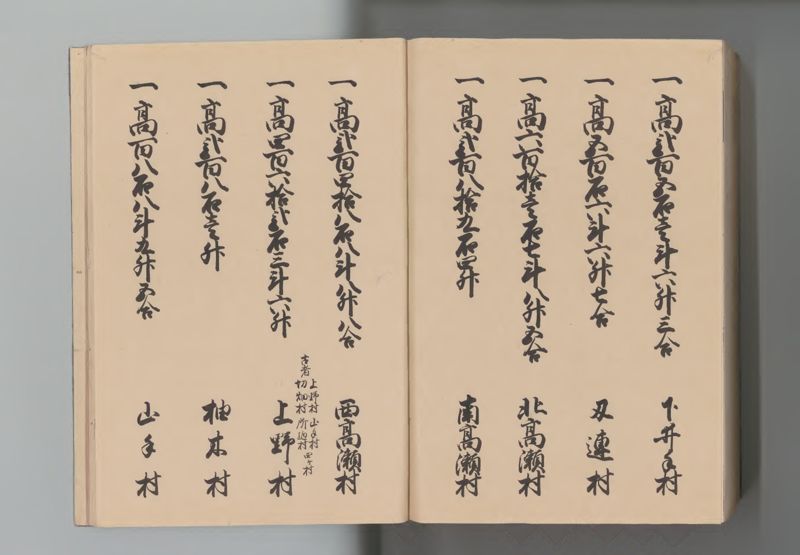 一高弐百五石壱斗六升三合
下井手村
一高五百石六斗六升七合
刃連村
一高六百拾壱石七斗八升五合
北高瀬村
一高弐百八拾九石四升
南高瀬村
一高弐百四拾八石八斗八升八合
西高瀬村
古者上野村山手村
切畑村 村四ヶ村
一高四百六拾弐石三斗六升
上野村
一高弐百八石壱升
柚木村
一高百八石八斗九升五合
山手村